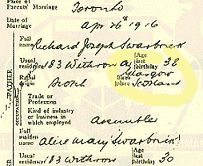 Place of
Parents' Marriage Toronto
Date of
Marriage Apr 26th 1916
Full
name Richard Joseph Swarbrick
Usual
residence 183 Withrow Av Age last birthday 38
Racial origin Scotch Birthplace Glasgow Scotland
Trade or
Profession
Kind of industry
or business in
which employed
Full
maiden
name Alice Mary Swarbrick
Usual
residence 183 Withrow Age last birthday 30